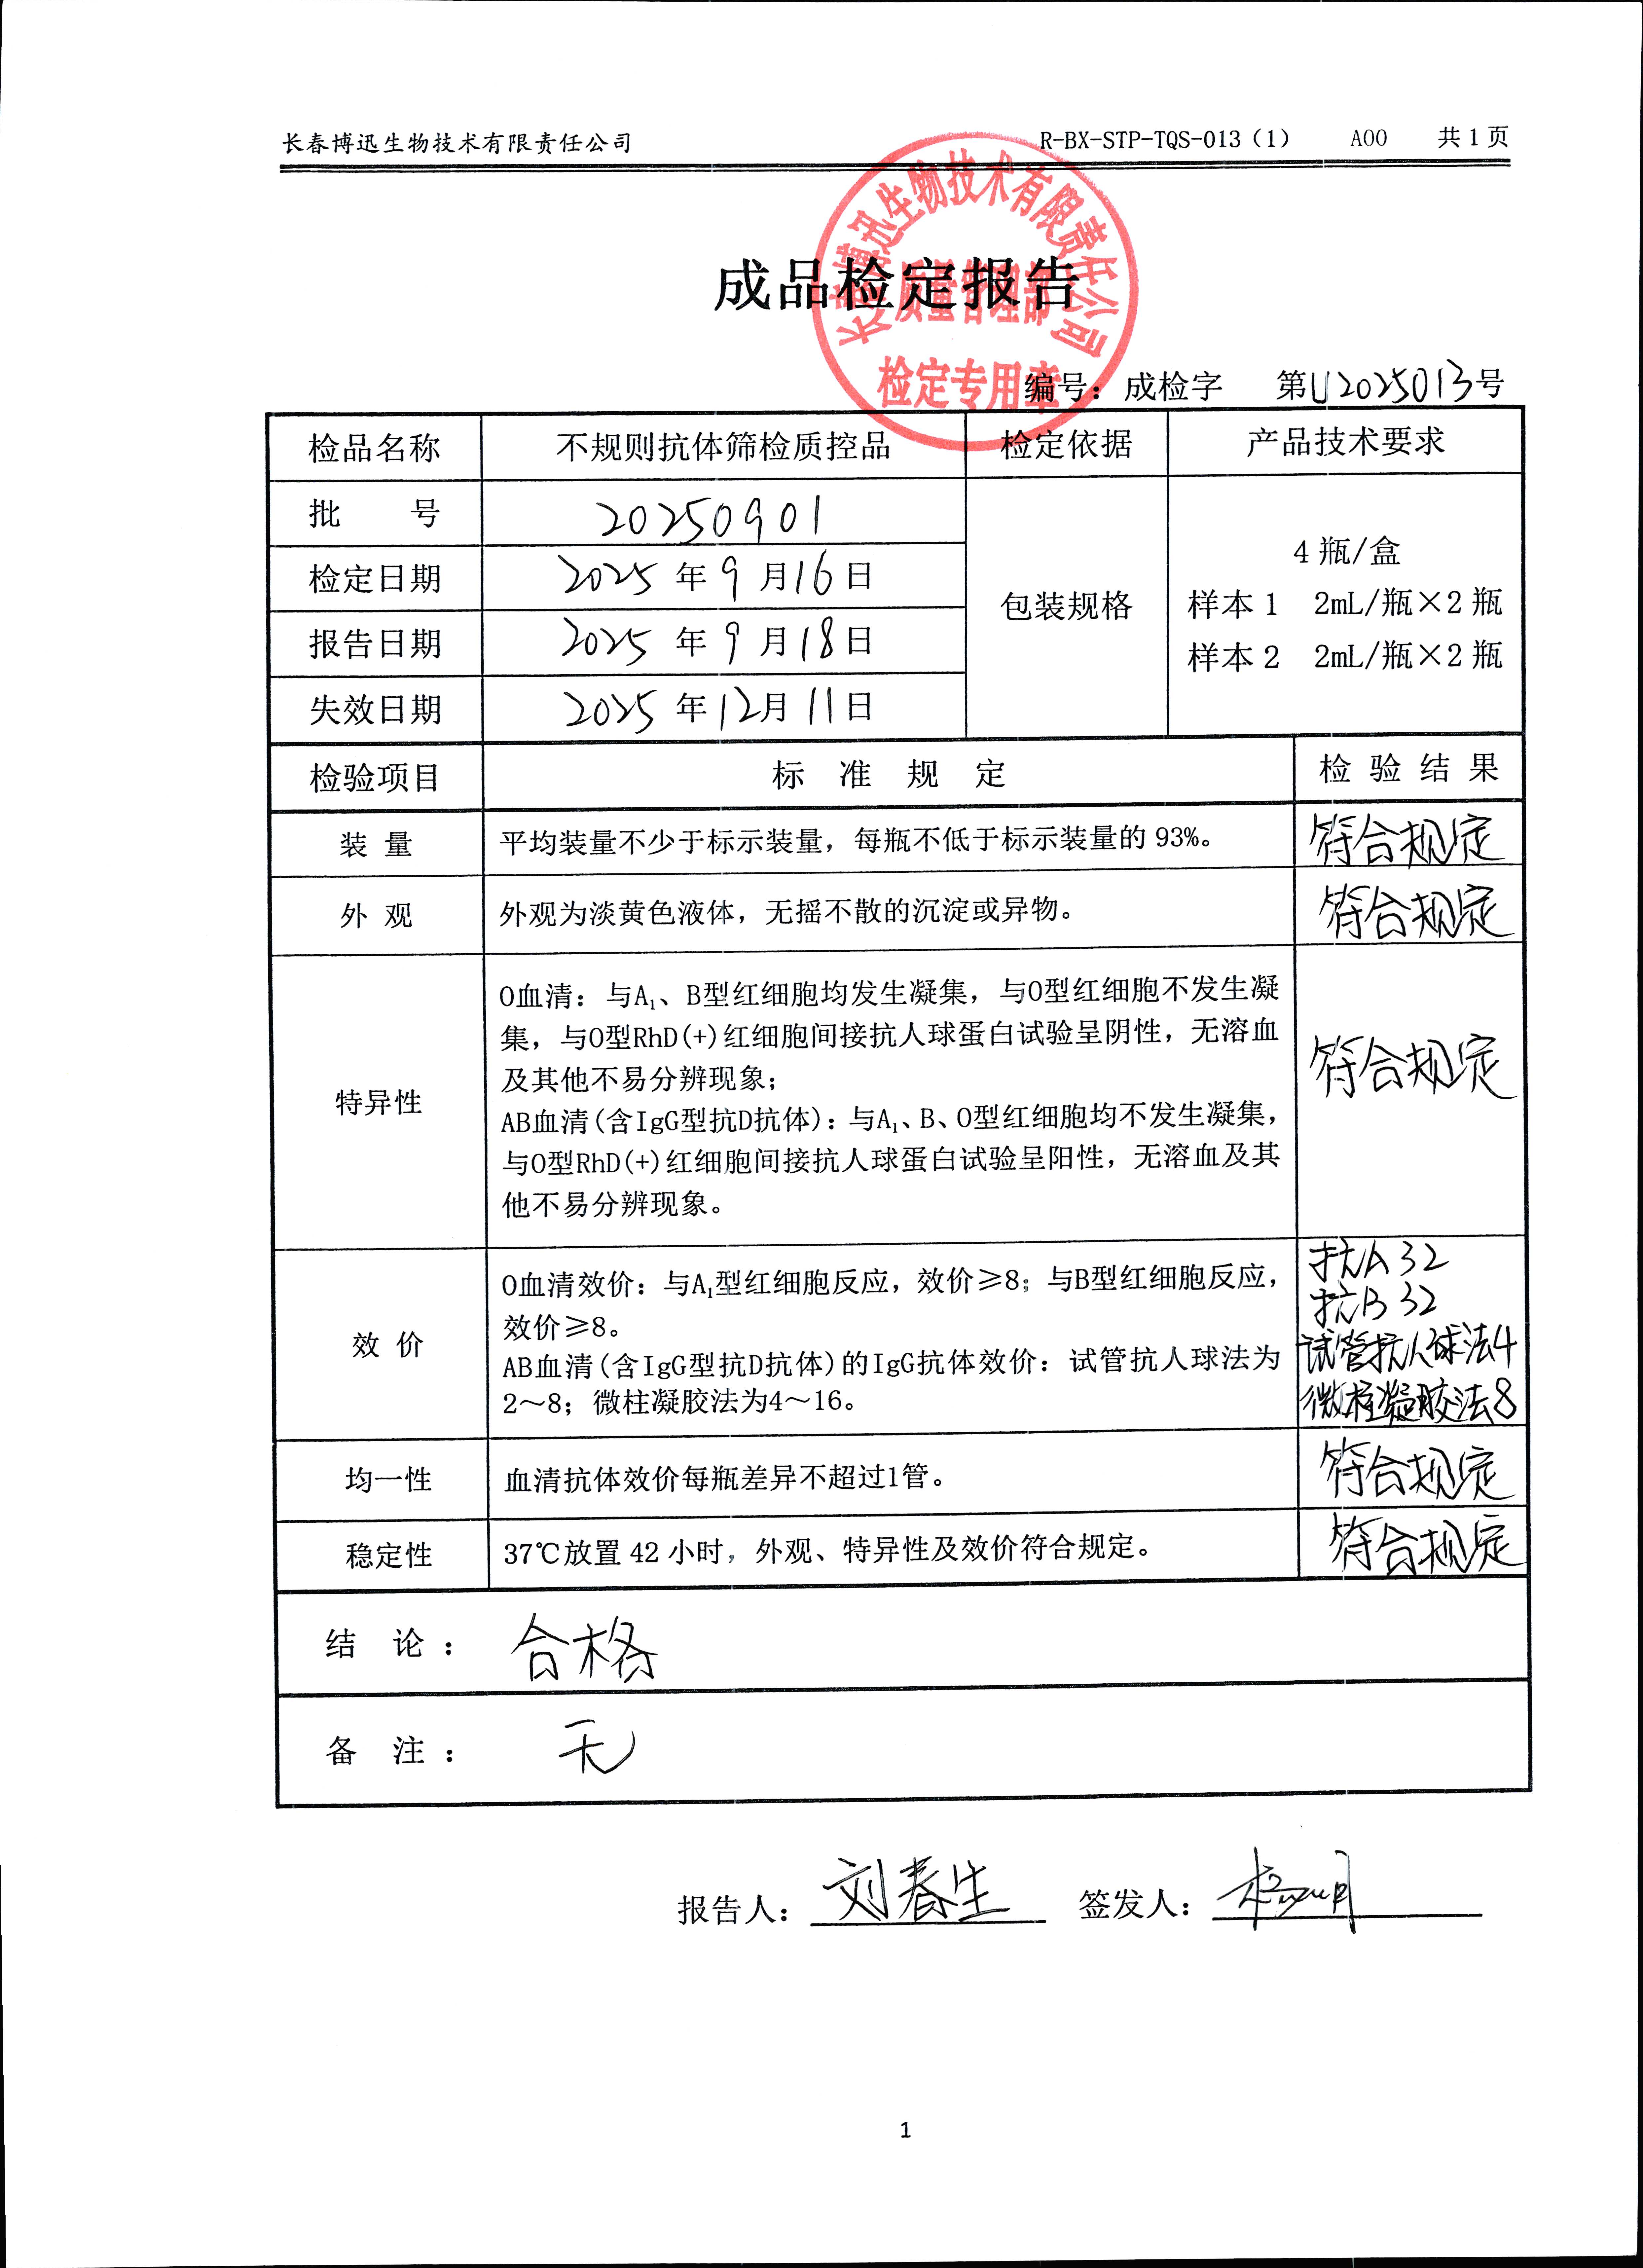 长春博迅生物技术有限责任公司 R-BX-STP-TQS-013（1） A00 共1页
长春博迅生物技术有限责任公司
质量管理部
检定专用章
成品检定报告
编号：成检字 第U2025013号
检品名称 不规则抗体筛检质控品 检定依据 产品技术要求
批 号 20250901
检定日期 2025年9月16日
报告日期 2025年9月18日
失效日期 2025年12月11日
包装规格
4瓶/盒
样本1 2mL/瓶×2瓶
样本2 2mL/瓶×2瓶
检验项目 标 准 规 定 检 验 结 果
装 量 平均装量不少于标示装量，每瓶不低于标示装量的93%。 符合规定
外 观 外观为淡黄色液体，无摇不散的沉淀或异物。 符合规定
特异性
O血清：与A₁、B型红细胞均发生凝集，与O型红细胞不发生凝
集，与O型RhD(+)红细胞间接抗人球蛋白试验呈阴性，无溶血
及其他不易分辨现象；
AB血清(含IgG型抗D抗体)：与A₁、B、O型红细胞均不发生凝集，
与O型RhD(+)红细胞间接抗人球蛋白试验呈阳性，无溶血及其
他不易分辨现象。
符合规定
效 价
O血清效价：与A₁型红细胞反应，效价≥8；与B型红细胞反应，
效价≥8。
AB血清(含IgG型抗D抗体)的IgG抗体效价：试管抗人球法为
2～8；微柱凝胶法为4～16。
抗A 32
抗B 32
试管抗人球法4
微柱凝胶法8
均一性 血清抗体效价每瓶差异不超过1管。 符合规定
稳定性 37℃放置42小时，外观、特异性及效价符合规定。 符合规定
结 论： 合格
备 注： 无
报告人：刘春生 签发人：
1